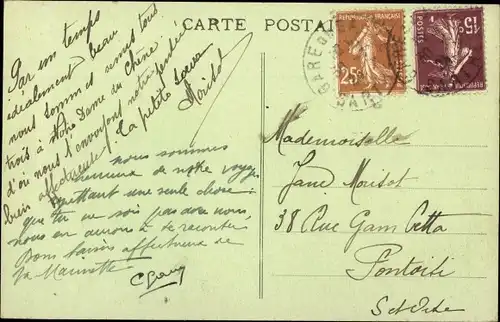 CARTE POSTALE
Par un temps
idéalement beau
nous sommes venus tous
trois à Notre Dame du Chêne
d'où nous t'envoyons notre pensée
bien affectueuse. La petite soeur
Moridot
nous sommes
de notre voyage
regrettant une seule chose
que tu ne sois pas avec nous,
nous en aurons à te raconter
Bons baisers affectueux de
ta Mamette
Mademoiselle
Jane Moridot
38 Rue Gambetta
Pontoise
S et Oise
REPUBLIQUE FRANÇAISE
25c
15c
POSTES
GARE